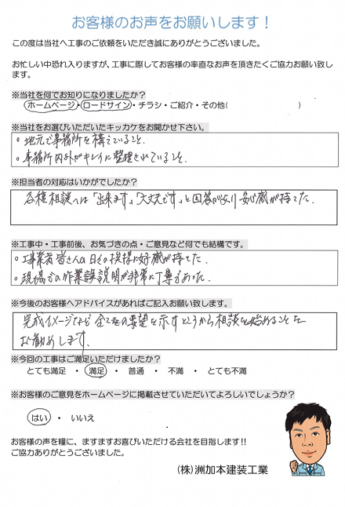 お客様のお声をお願いします！
この度は当社へ工事のご依頼をいただき誠にありがとうございました。
お忙しい中恐れ入りますが、工事に際してお客様の率直なお声を頂きたくご協力お願い致します。
※当社を何でお知りになりましたか？
ホームページ・ロードサイン・チラシ・ご紹介・その他(　　　　　　)
※当社をお選びいただいたキッカケをお聞かせ下さい。
○地元で事務所を構えていること.
○事務所内外がキレイに整理されていること.
※担当者の対応はいかがでしたか？
各種相談へは「出来ます」「大丈夫です」と回答があり安心感が持てた.
※工事中・工事前後、お気づきの点・ご意見など何でも結構です。
好感が持てた.
説明が非常に丁寧であった.
※今後のお客様へアドバイスがあればご記入お願い致します。
完成イメージ 全ての要望を示すところから相談を始めることを
お勧めします.
※今回の工事はご満足いただけましたか？
とても満足 ・ 満足 ・ 普通 ・ 不満 ・ とても不満
※お客様のご意見をホームページに掲載させていただいてよろしいでしょうか？
はい ・ いいえ
お客様の声を糧に、ますますお喜びいただける会社を目指します!!
ご協力ありがとうございました。
(株)洲加本建装工業